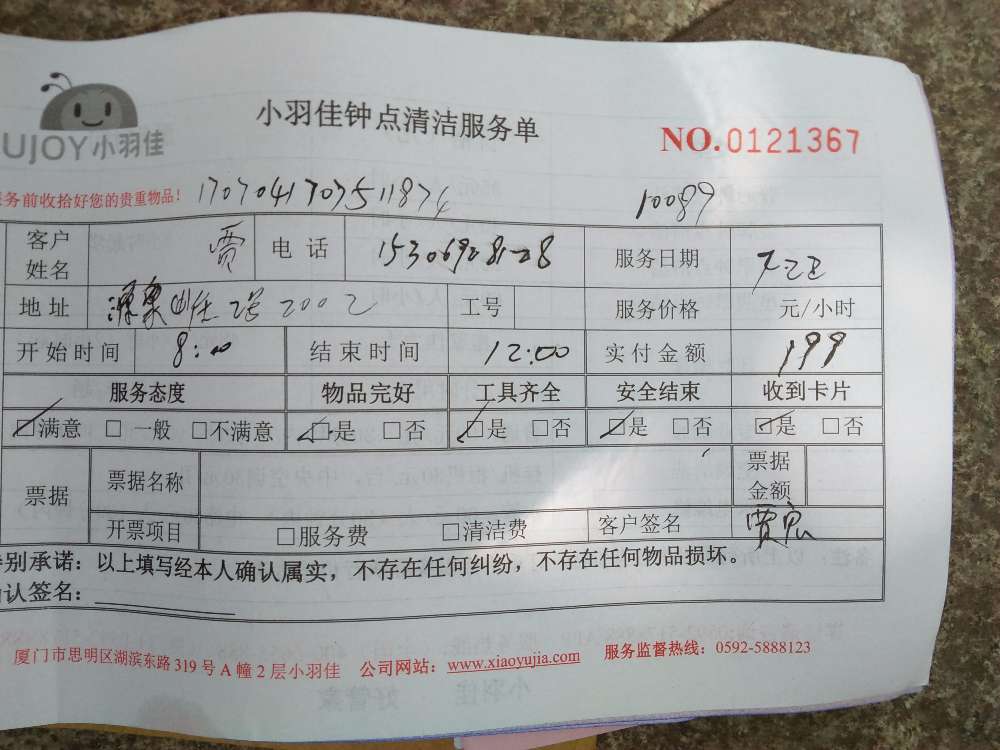 UJOY小羽佳
小羽佳钟点清洁服务单
NO.0121367
务前收拾好您的贵重物品!
1707041707511874
10089
客户姓名 贾 电话 服务日期
地址 2002 工号 服务价格 元/小时
开始时间 8:00 结束时间 12:00 实付金额 199
服务态度 物品完好 工具齐全 安全结束 收到卡片
☑满意 □一般 □不满意 ☑是 □否 ☑是 □否 ☑是 □否 ☑是 □否
票据 票据名称 票据金额
开票项目 □服务费 □清洁费 客户签名 贾宏
别承诺：以上填写经本人确认属实，不存在任何纠纷，不存在任何物品损坏。
认签名：
厦门市思明区湖滨东路319号A幢2层小羽佳 公司网站：www.xiaoyujia.com 服务监督热线：0592-5888123